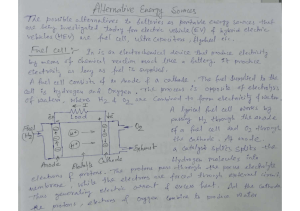 Alternative Energy Sources
The possible alternatives to batteries as portable energy sources that
are being investigated today for electric vehicle (EV) & hybrid electric
vehicles (HEV) are fuel cell, ultra capacitors, flywheel etc.
Fuel cell :- It is an electrochemical device that produce electricity
by means of chemical reaction much like a battery. It produce
electricity as long as fuel is supplied.
A fuel cell consists of anode & a cathode. The fuel supplied to the
cell is hydrogen and oxygen. The process is opposite of electrolysis
of water, where H2 & O2 are
Load
A typical fuel cell
H2 through the anode
of a fuel cell and O2 through
the cathode. At anode,
a catalyst splits the
Hydrogen molecules into
Fuel
O2
H+
H+
Anode
Cathode
electrons & protons. The protons pass through the
membrane, while the electrons are forced through external circuit
thus generating electric current & excess heat. At the cathode
the protons, electrons & oxygen combine to produce water